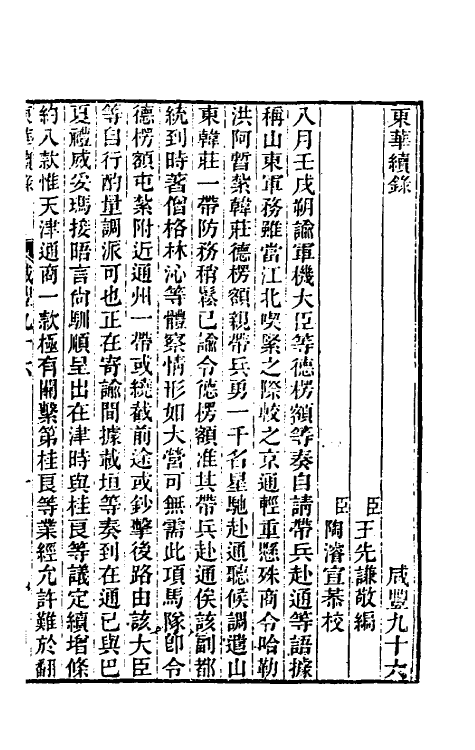 東華續錄　咸豐九十六
臣王先謙敬編
臣陶濬宣恭校
八月壬戌朔諭軍機大臣等德楞額等奏自請帶兵赴通等語據
稱山東軍務雖當江北喫緊之際較之京通輕重懸殊商令哈勒
洪阿暫紮韓莊德楞額親帶兵勇一千名星馳赴通聽候調遣山
東韓莊一帶防務稍鬆已諭令德楞額准其帶兵赴通俟該副都
統到時著僧格林沁等體察情形如大營可無需此項馬隊卽令
德楞額屯紮附近通州一帶或繞截前途或鈔擊後路由該大臣
等自行酌量調派可也正在寄諭間據載垣等奏到在通已與巴
夏禮威妥瑪接晤言尙馴順呈出在津時與桂良等議定續增條
約八款惟天津通商一款極有關繫第桂良等業經允許難於翻
東華續錄　咸豐九十六